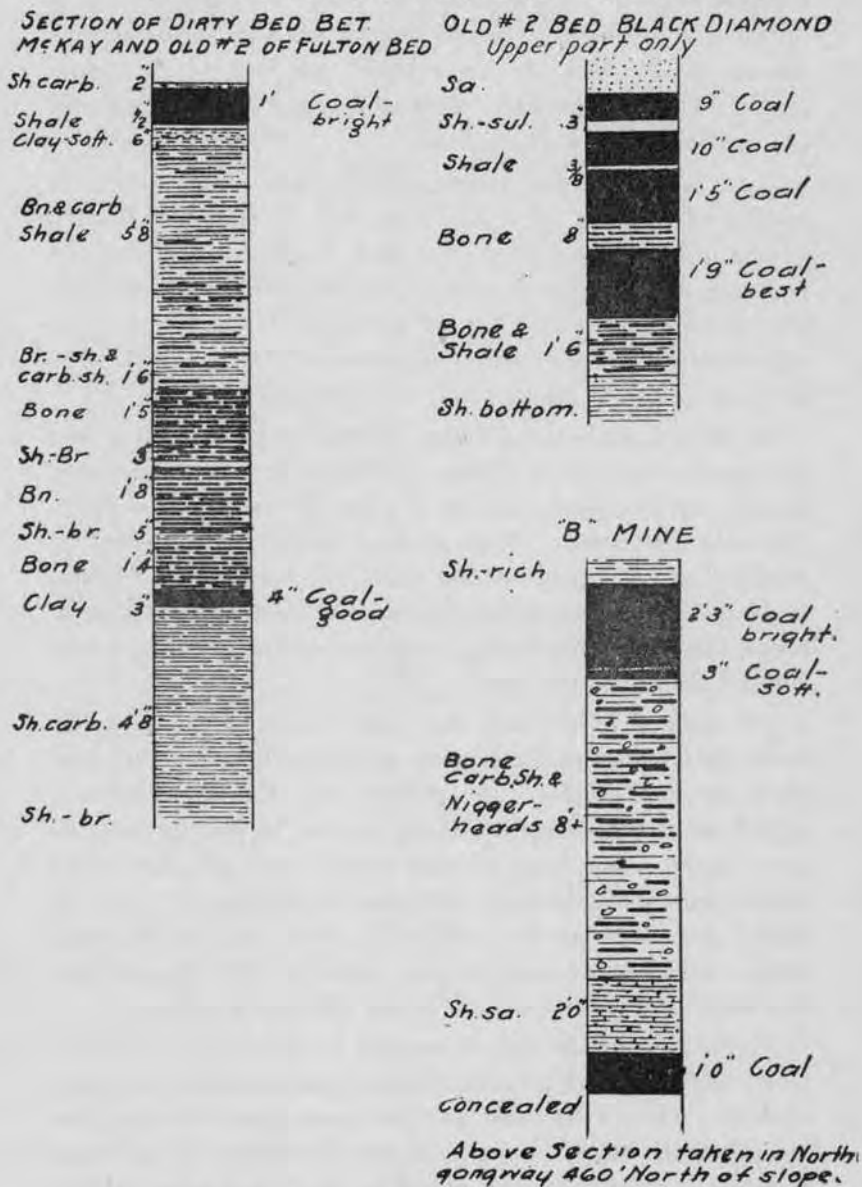 SECTION OF DIRTY BED BET.
McKAY AND OLD #2 OF FULTON BED
Sh carb. 2"
1' Coal-
bright
Shale ½"
Clay-soft. 6"
Bn.& carb
Shale 5'8"
Br.-sh.&
carb.sh. 1'6"
Bone 1'5"
Sh.-Br 3"
Bn. 1'8"
Sh.-br. 5"
Bone 1'4"
4" Coal-
good
Clay 3"
Sh.carb. 4'8"
Sh.-br.
OLD #2 BED BLACK DIAMOND
Upper part only
Sa.
9" Coal
Sh.-sul. .3"
10" Coal
Shale 3/8"
1'5" Coal
Bone 8"
1'9" Coal-
best
Bone &
Shale 1'6"
Sh. bottom.
"B" MINE
Sh.-rich
2'3" Coal
bright.
3" Coal-
soft.
Bone
Carb.Sh.&
Nigger-
heads 8'+
Sh.sa. 2'0"
1'0" Coal
concealed
Above Section taken in North
gangway 460' North of slope.